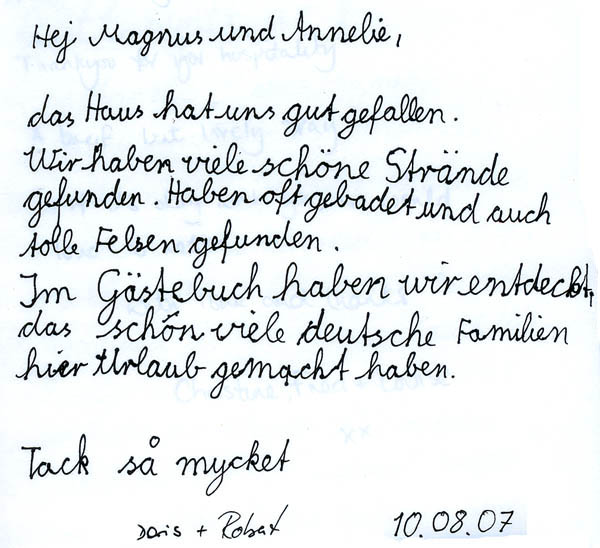 Hej Magnus und Annelie,
das Haus hat uns gut gefallen.
Wir haben viele schöne Strände
gefunden. Haben oft gebadet und auch
tolle Felsen gefunden.
Im Gästebuch haben wir entdeckt,
das schön viele deutsche Familien
hier Urlaub gemacht haben.
Tack så mycket
Doris + Robert 10.08.07